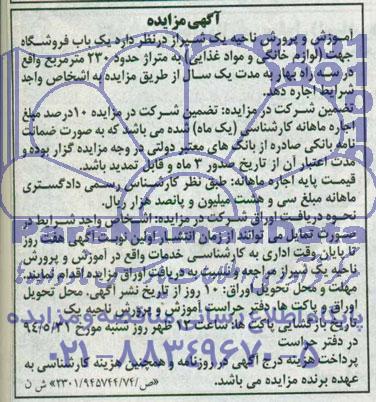 آگهی مزایده
آموزش و پرورش ناحیه یک شیراز درنظر دارد یک باب فروشگاه
جهت (لوازم خانگی و مواد غذایی) به متراژ حدود ۲۳۰ مترمربع واقع
در سه راه بهار به مدت یک سال از طریق مزایده به اشخاص واجد
شرایط اجاره دهد.
تضمین شرکت در مزایده: تضمین شرکت در مزایده ۱۰درصد مبلغ
اجاره ماهانه کارشناسی (یک ماه) شده می باشد که به صورت ضمانت
نامه بانکی صادره از بانک های معتبر دولتی در وجه مزایده گزار بوده و
مدت اعتبار آن از تاریخ صدور ۳ ماه و قابل تمدید باشد.
قیمت پایه اجاره ماهانه: طبق نظر کارشناس رسمی دادگستری
ماهانه مبلغ سی و هشت میلیون و پانصد هزار ریال.
نحوه دریافت اوراق شرکت در مزایده: اشخاص واجد شرایط در
صورت تمایل می توانند از زمان انتشار اولین نوبت آگهی هفت روز
تا پایان وقت اداری به کارشناسی خدمات واقع در آموزش و پرورش
ناحیه یک شیراز مراجعه و نسبت به دریافت اوراق مزایده اقدام نمایند.
مهلت و محل تحویل اوراق: ۱۰ روز از تاریخ نشر آگهی، محل تحویل
اوراق و پاکت ها: دفتر حراست آموزش و پرورش ناحیه یک
تاریخ بازگشایی پاکت ها: ساعت ۱۲ ظهر روز شنبه مورخ ۹۴/۵/۳۱
در دفتر حراست
پرداخت هزینه درج آگهی در روزنامه و همچنین هزینه کارشناسی به
عهده برنده مزایده می باشد.
«ص/۲۳۰۱/۹۴۵۷۴۴/۷۴» ش ن
پایگاه اطلاع رسانی مناقصه و مزایده
۰۲۱-۸۸۳۴۹۶۷۰-۵